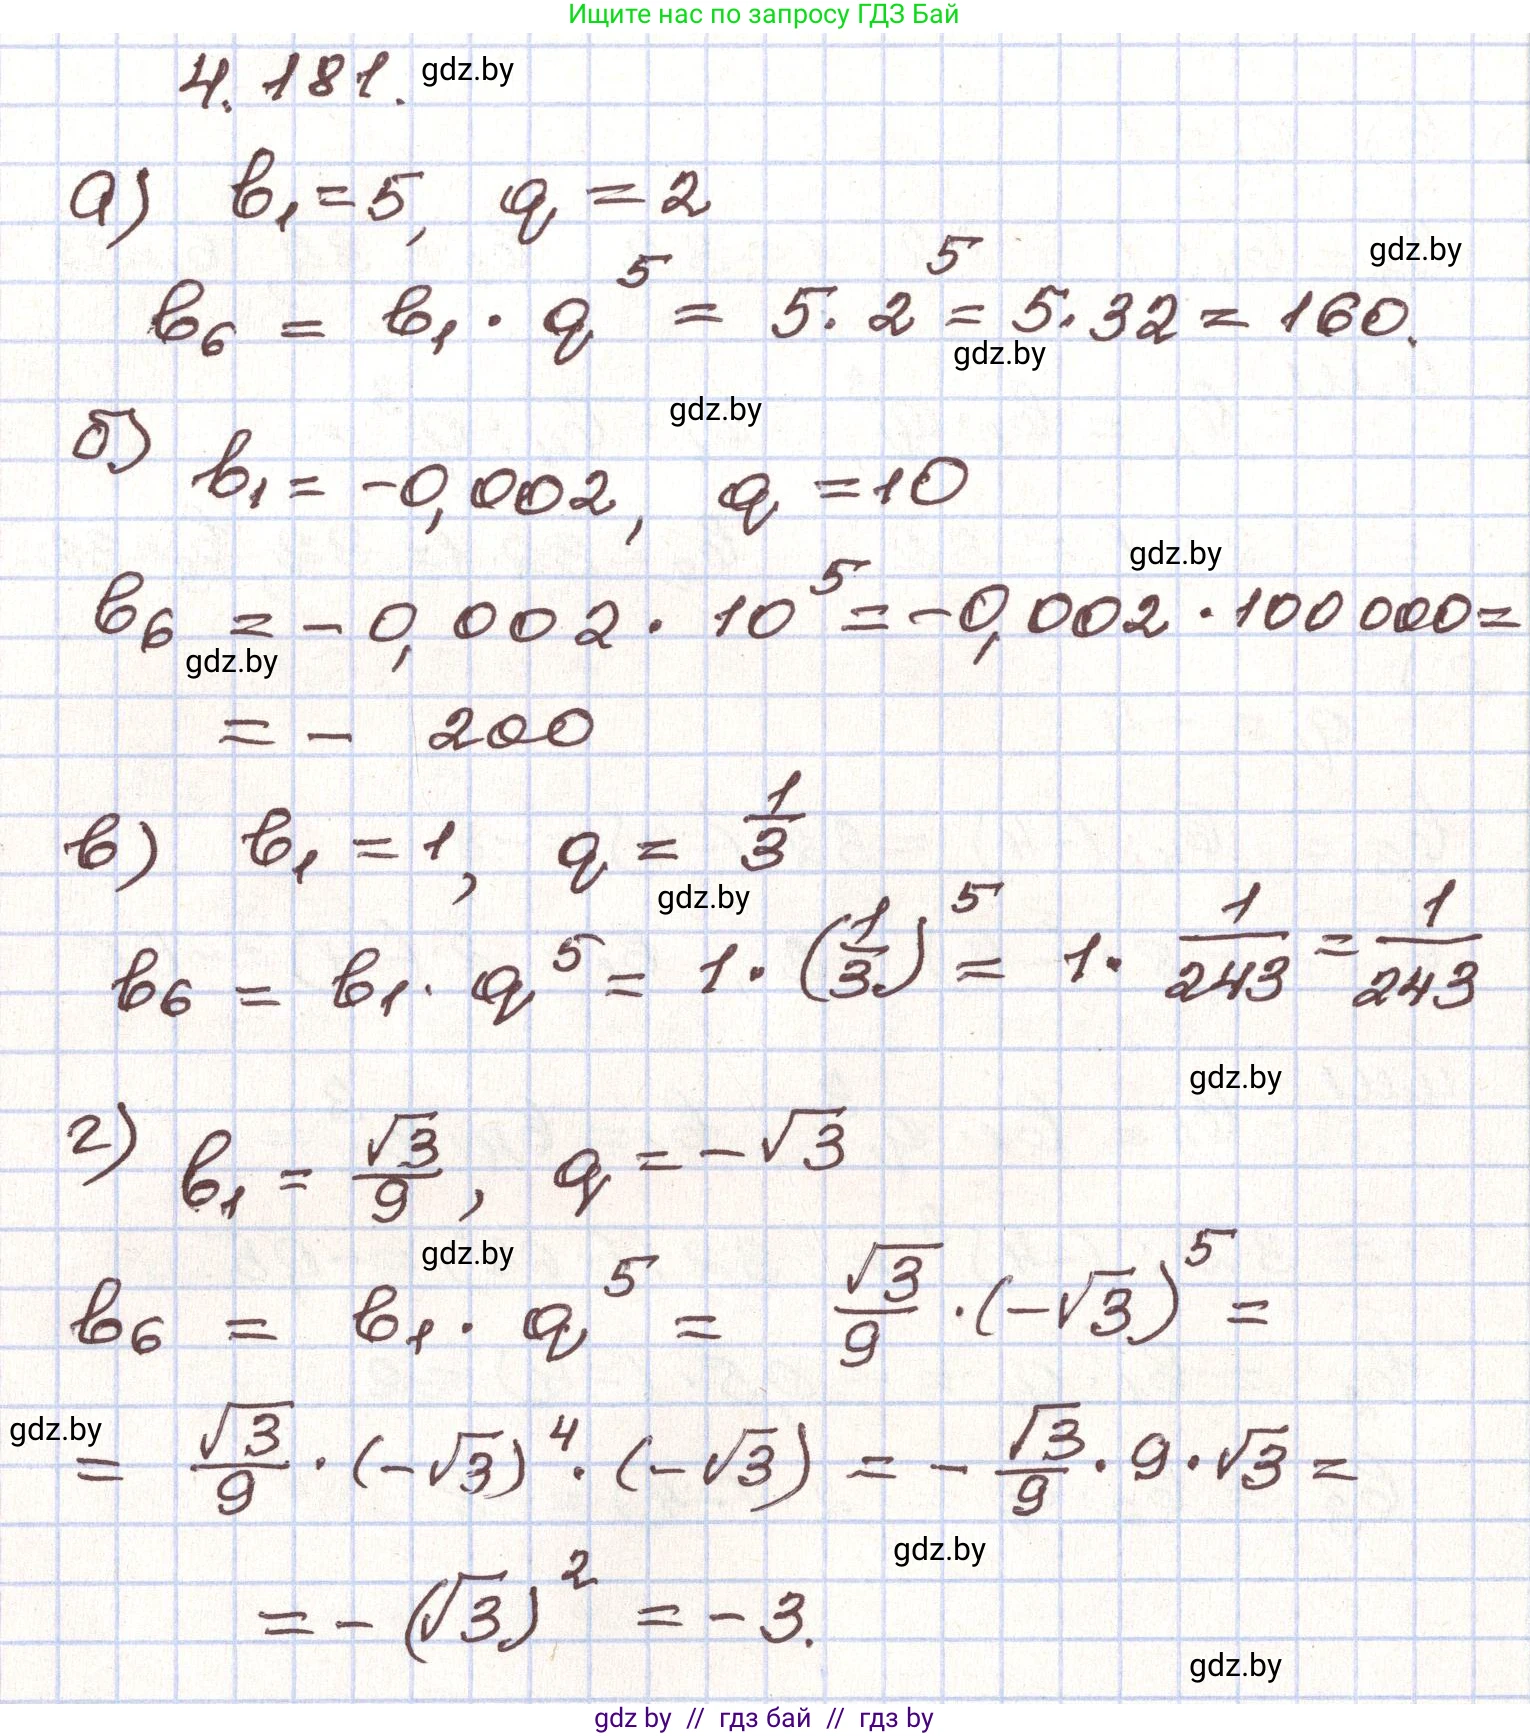 Ищите нас по запросу ГДЗ Бай
4.181. gdz.by
а) b₁ = 5, q = 2
gdz.by
b₆ = b₁ · q⁵ = 5 · 2⁵ = 5 · 32 = 160.
gdz.by
gdz.by
б) b₁ = -0,002, q = 10
gdz.by
b₆ = -0,002 · 10⁵ = -0,002 · 100 000 =
gdz.by
= - 200
в) b₁ = 1, q = 1/3
gdz.by
b₆ = b₁ · q⁵ = 1 · (1/3)⁵ = 1 · 1/243 = 1/243
gdz.by
г) b₁ = √3/9, q = -√3
gdz.by
b₆ = b₁ · q⁵ = √3/9 · (-√3)⁵ =
gdz.by
= √3/9 · (-√3)⁴ · (-√3) = - √3/9 · 9 · √3 =
gdz.by
= - (√3)² = - 3.
gdz.by
gdz by // гдз бай // гдз by